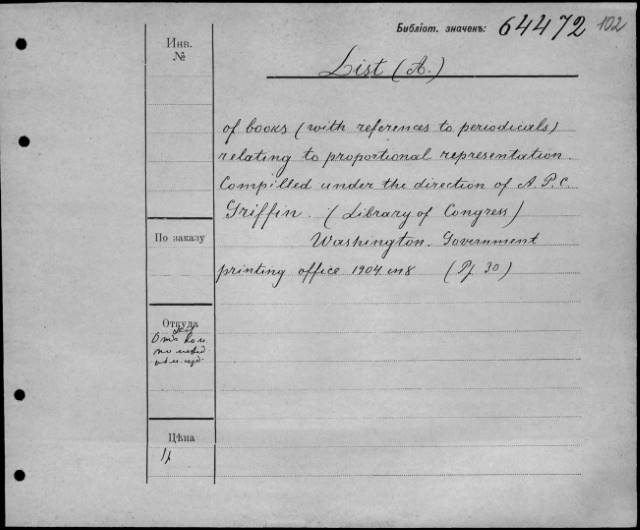 Библіот. значекъ: 64472 102
Инв.
№
List (A.)
of books (with references to periodicals)
relating to proportional representation.
Compilled under the direction of A. P. C.
Griffin. (Library of Congress)
По заказу
Washington. Government
printing office 1904 in 8 (Pf 30)
Откуда
Цѣна